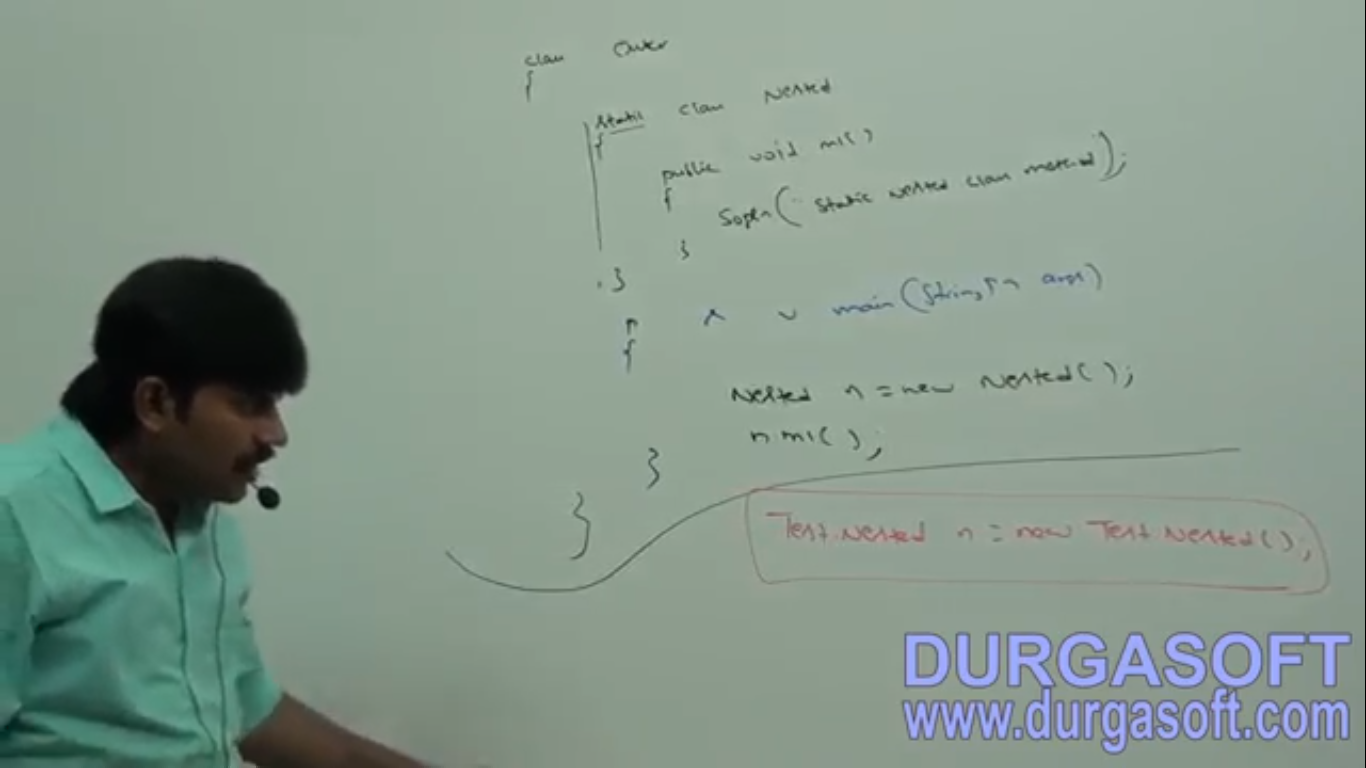 class Outer
{
static class Nested
{
public void m1()
{
Sopln("static nested class method);
}
}
p s v main(String[] args)
{
Nested n = new Nested();
n.m1();
}
}
Test.Nested n = new Test.Nested();
DURGASOFT
www.durgasoft.com